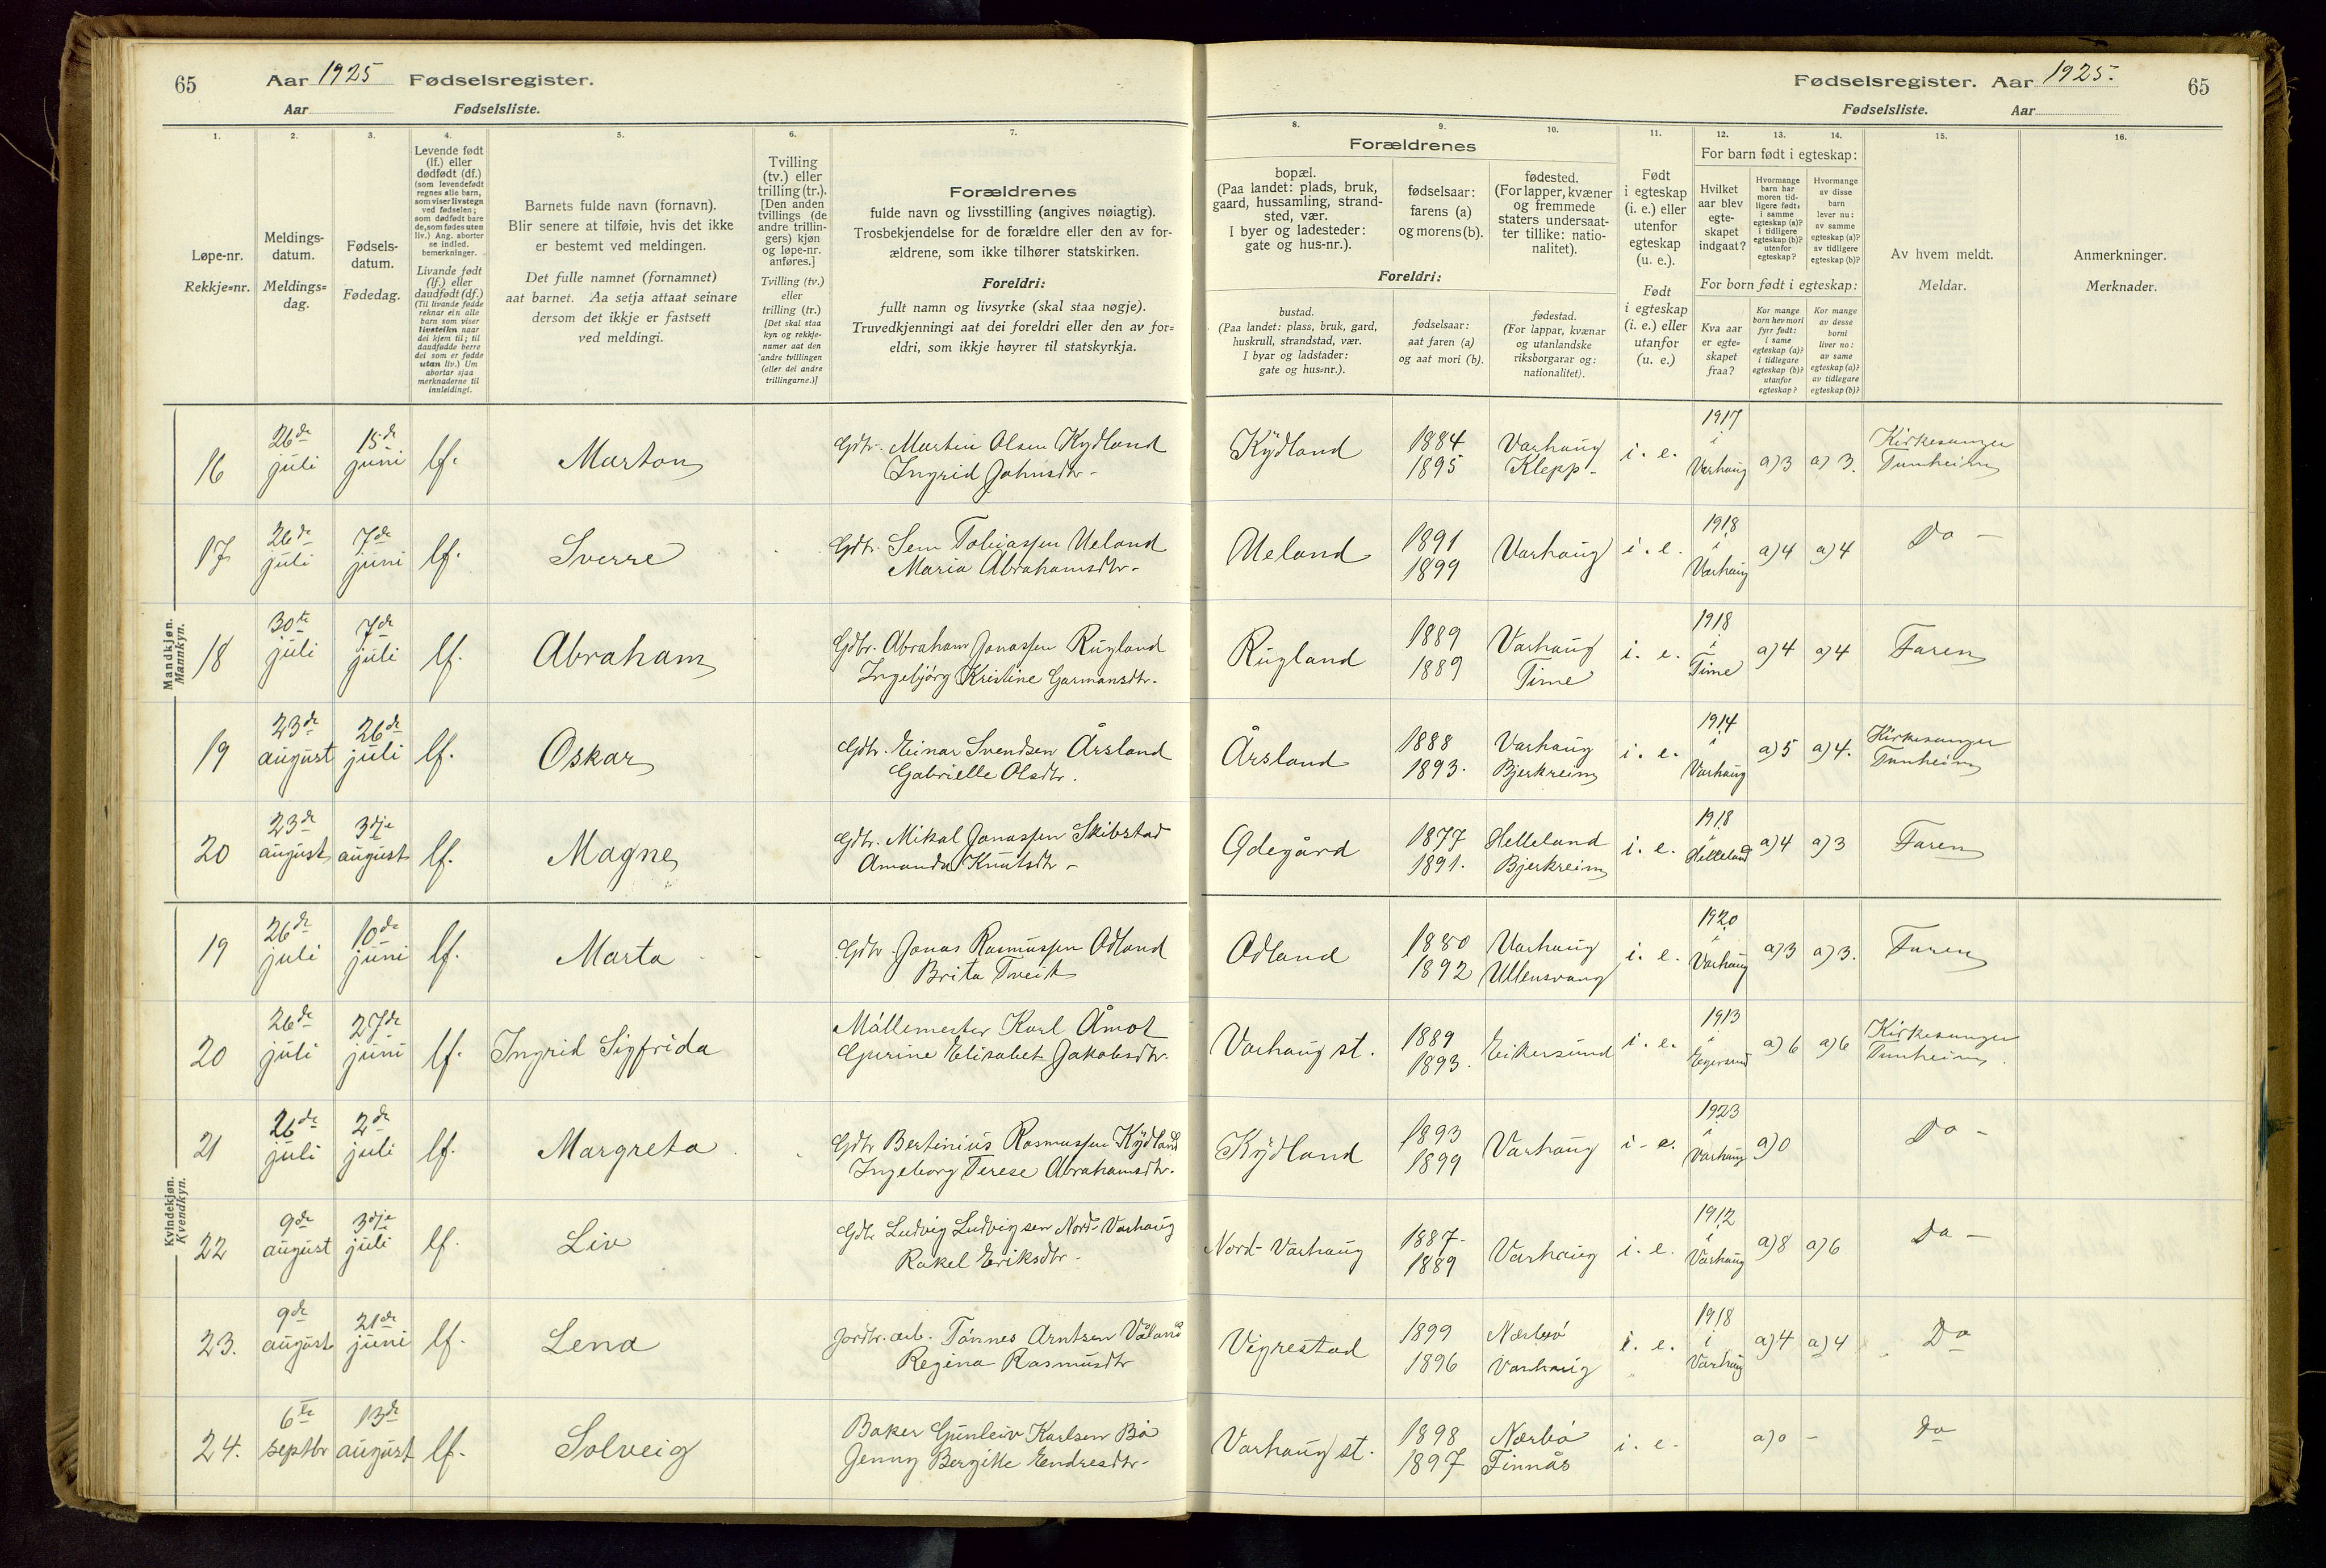 65 Aar 1925 Fødselsregister.
Aar Fødselsliste.
1. 2. 3. 4. 5. 6. 7.
Løpe-nr.
Rekkje=nr.
Meldings-
datum.
Meldings=
dag.
Fødsels-
datum.
Fødedag.
Levende født
(lf.) eller
dødfødt (df.)
(som levendefødt
regnes alle barn,
som viser livstegn
ved fødselen;
som dødfødt bare
de, som fødes uten
liv.) Ang. aborter
se indled.
bemerkninger.
Livande født
(lf.) eller
daudfødt (df.)
(Til livande fødde
reknar ein alle
barn som viser
livsteikn naar
dei kjem til; til
daudfødde berre
dei som er fødde
utan liv.) Um
abortar sjaa
merknaderne til
innleidingi.
Barnets fulde navn (fornavn).
Blir senere at tilføie, hvis det ikke
er bestemt ved meldingen.
Det fulle namnet (fornamnet)
aat barnet. Aa setja attaat seinare
dersom det ikkje er fastsett
ved meldingi.
Tvilling
(tv.) eller
trilling (tr.).
[Den anden
tvillings (de
andre trillin-
gers) kjøn
og løpe-nr.
anføres.]
Tvilling (tv.)
eller
trilling (tr.)
[Det skal staa
kyn og rekkje-
numer aat den
andre tvillingen
(eller dei andre
trillingarne.)]
Forældrenes
fulde navn og livsstilling (angives nøiagtig).
Trosbekjendelse for de forældre eller den av for-
ældrene, som ikke tilhører statskirken.
Foreldri:
fullt namn og livsyrke (skal staa nøgje).
Truvedkjenningi aat dei foreldri eller den av for=
eldri, som ikkje høyrer til statskyrkja.
Fødselsregister. Aar 1925. 65
Fødselsliste. Aar
8. 9. 10. 11. 12. 13. 14. 15. 16.
Forældrenes
bopæl.
(Paa landet: plads, bruk,
gaard, hussamling, strand-
sted, vær.
I byer og ladesteder:
gate og hus-nr.).
fødselsaar:
farens (a)
og morens (b).
fødested.
(For lapper, kvæner
og fremmede
staters undersaat-
ter tillike: natio-
nalitet).
Foreldri:
bustad.
(Paa landet: plass, bruk, gard,
huskrull, strandstad, vær.
I byar og ladstader:
gate og hus=nr.).
fødselsaar:
aat faren (a)
og aat mori (b).
fødestad.
(For lappar, kvænar
og utanlandske
riksborgarar og:
nationalitet).
Født
i egteskap
(i. e.) eller
utenfor
egteskap
(u. e.).
Født
i egteskap
(i. e.) eller
utanfor
(u. e.)
For barn født i egteskap:
Hvilket
aar blev
egte-
skapet
indgaat?
Hvormange
barn har
moren tid-
ligere født:
i samme
egteskap (a)?
i tidligere
egteskap (b)?
utenfor
egteskap?
Hvormange
av disse
barn
lever nu:
av samme
egteskap (a)?
av tidligere
egteskap (b)?
For born født i egteskap:
Kva aar
er egte=
skapet
fraa?
Kor mange
born hev mori
fyrr født:
i same
egteskap (a)?
i tidlegare
egteskap (b)?
utanfor
egteskap?
Kor mange
av desse
borni
liver no:
av same
egteskap (a)?
av tidlegare
egteskap (b)?
Av hvem meldt.
Meldar.
Anmerkninger.
Merknader.
Mandkjøn.
Mannkyn.
16 26de juli 15de juni lf. Marton Gdbr. Martin Olsen Kydland
Ingrid Johnsdtr. Kydland 1884 1895 Varhaug Klepp i. e. 1917 i Varhaug a)3 a)3. Kirkesanger Tunheim
17 26de juli 7de juni lf. Sverre Gdbr. Sem Tobiassen Ueland
Maria Abrahamsdtr. Ueland 1891 1899 Varhaug i. e. 1918 i Varhaug a)4 a)4 Do
18 30te juli 7de juli lf. Abraham Gdbr. Abraham Jonassen Rugland
Ingebjörg Kristine Garmansdtr. Rugland 1889 1889 Varhaug Time i. e. 1918 i Time a)4 a)4 Faren
19 23de august 26de juli lf. Oskar Gdbr. Einar Svendsen Årsland
Gabrielle Olsdtr. Årsland 1888 1893. Varhaug Bjerkreim i. e. 1914 i Varhaug a)5 a)4. Kirkesanger Tunheim
20 23de august 3dje august lf. Magne Gdbr. Mikal Jonassen Skibstad
Amanda Knutsdtr. Ödegård 1877 1891. Helleland Bjerkreim i. e. 1918 i Helleland a)4 a)3 Faren
Kvindekjøn.
Kvendkyn.
19 26de juli 10de juni lf. Marta Gdbr. Jonas Rasmussen Odland
Brita Tveit Odland 1880 1892 Varhaug Ullensvang i. e. 1920 i Varhaug a)3 a)3. Faren
20 26de juli 27de juni lf. Ingrid Sigfrida Möllemester Karl Åmot
Gurine Elisabet Jakobsdtr. Varhaug st. 1889 1893. Eikersund i. e. 1913 i Egersund a)6 a)6 Kirkesanger Tunheim
21 26de juli 2de juli lf. Margreta Gdbr Bertinius Rasmussen Kydland
Ingeborg Terese Abrahamsdtr. Kydland 1893 1899 Varhaug i. e. 1923 i Varhaug a)0 Do
22 9de august 3dje juli lf. Liv Gdbr Ludvig Ludvigsen Nord-Varhaug
Rakel Eriksdtr. Nord-Varhaug 1887 1889 Varhaug i. e. 1912 i Varhaug a)8 a)6 Do
23. 9de august 21de juni lf. Lena Jordbr. arb. Tönnes Arntsen Våland
Regina Rasmusdtr Vigrestad 1899 1896 Nærbö Varhaug i. e. 1918 i Varhaug a)4 a)4 Do
24. 6te septbr 13de august lf. Solveig Baker Gunleiv Karlsen Bö
Jenny Bergitte Endresdtr. Varhaug st. 1898 1897 Nærbö Finnås i. e. a)0 - Do